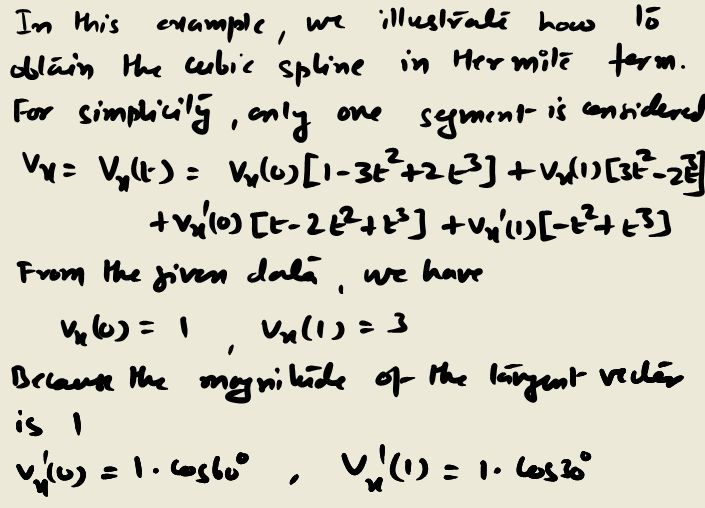 In this example, we illustrate how to
obtain the cubic spline in Hermite form.
For simplicity, only one segment is considered
Vx = Vx(t) = Vx(0)[1-3t²+2t³] + Vx(1)[3t²-2t³]
+ Vx'(0) [t-2t²+t³] + Vx'(1)[-t²+t³]
From the given data, we have
Vx(0) = 1 , Vx(1) = 3
Because the magnitude of the tangent vector
is 1
Vx'(0) = 1· Cos60° , Vx'(1) = 1· Cos30°